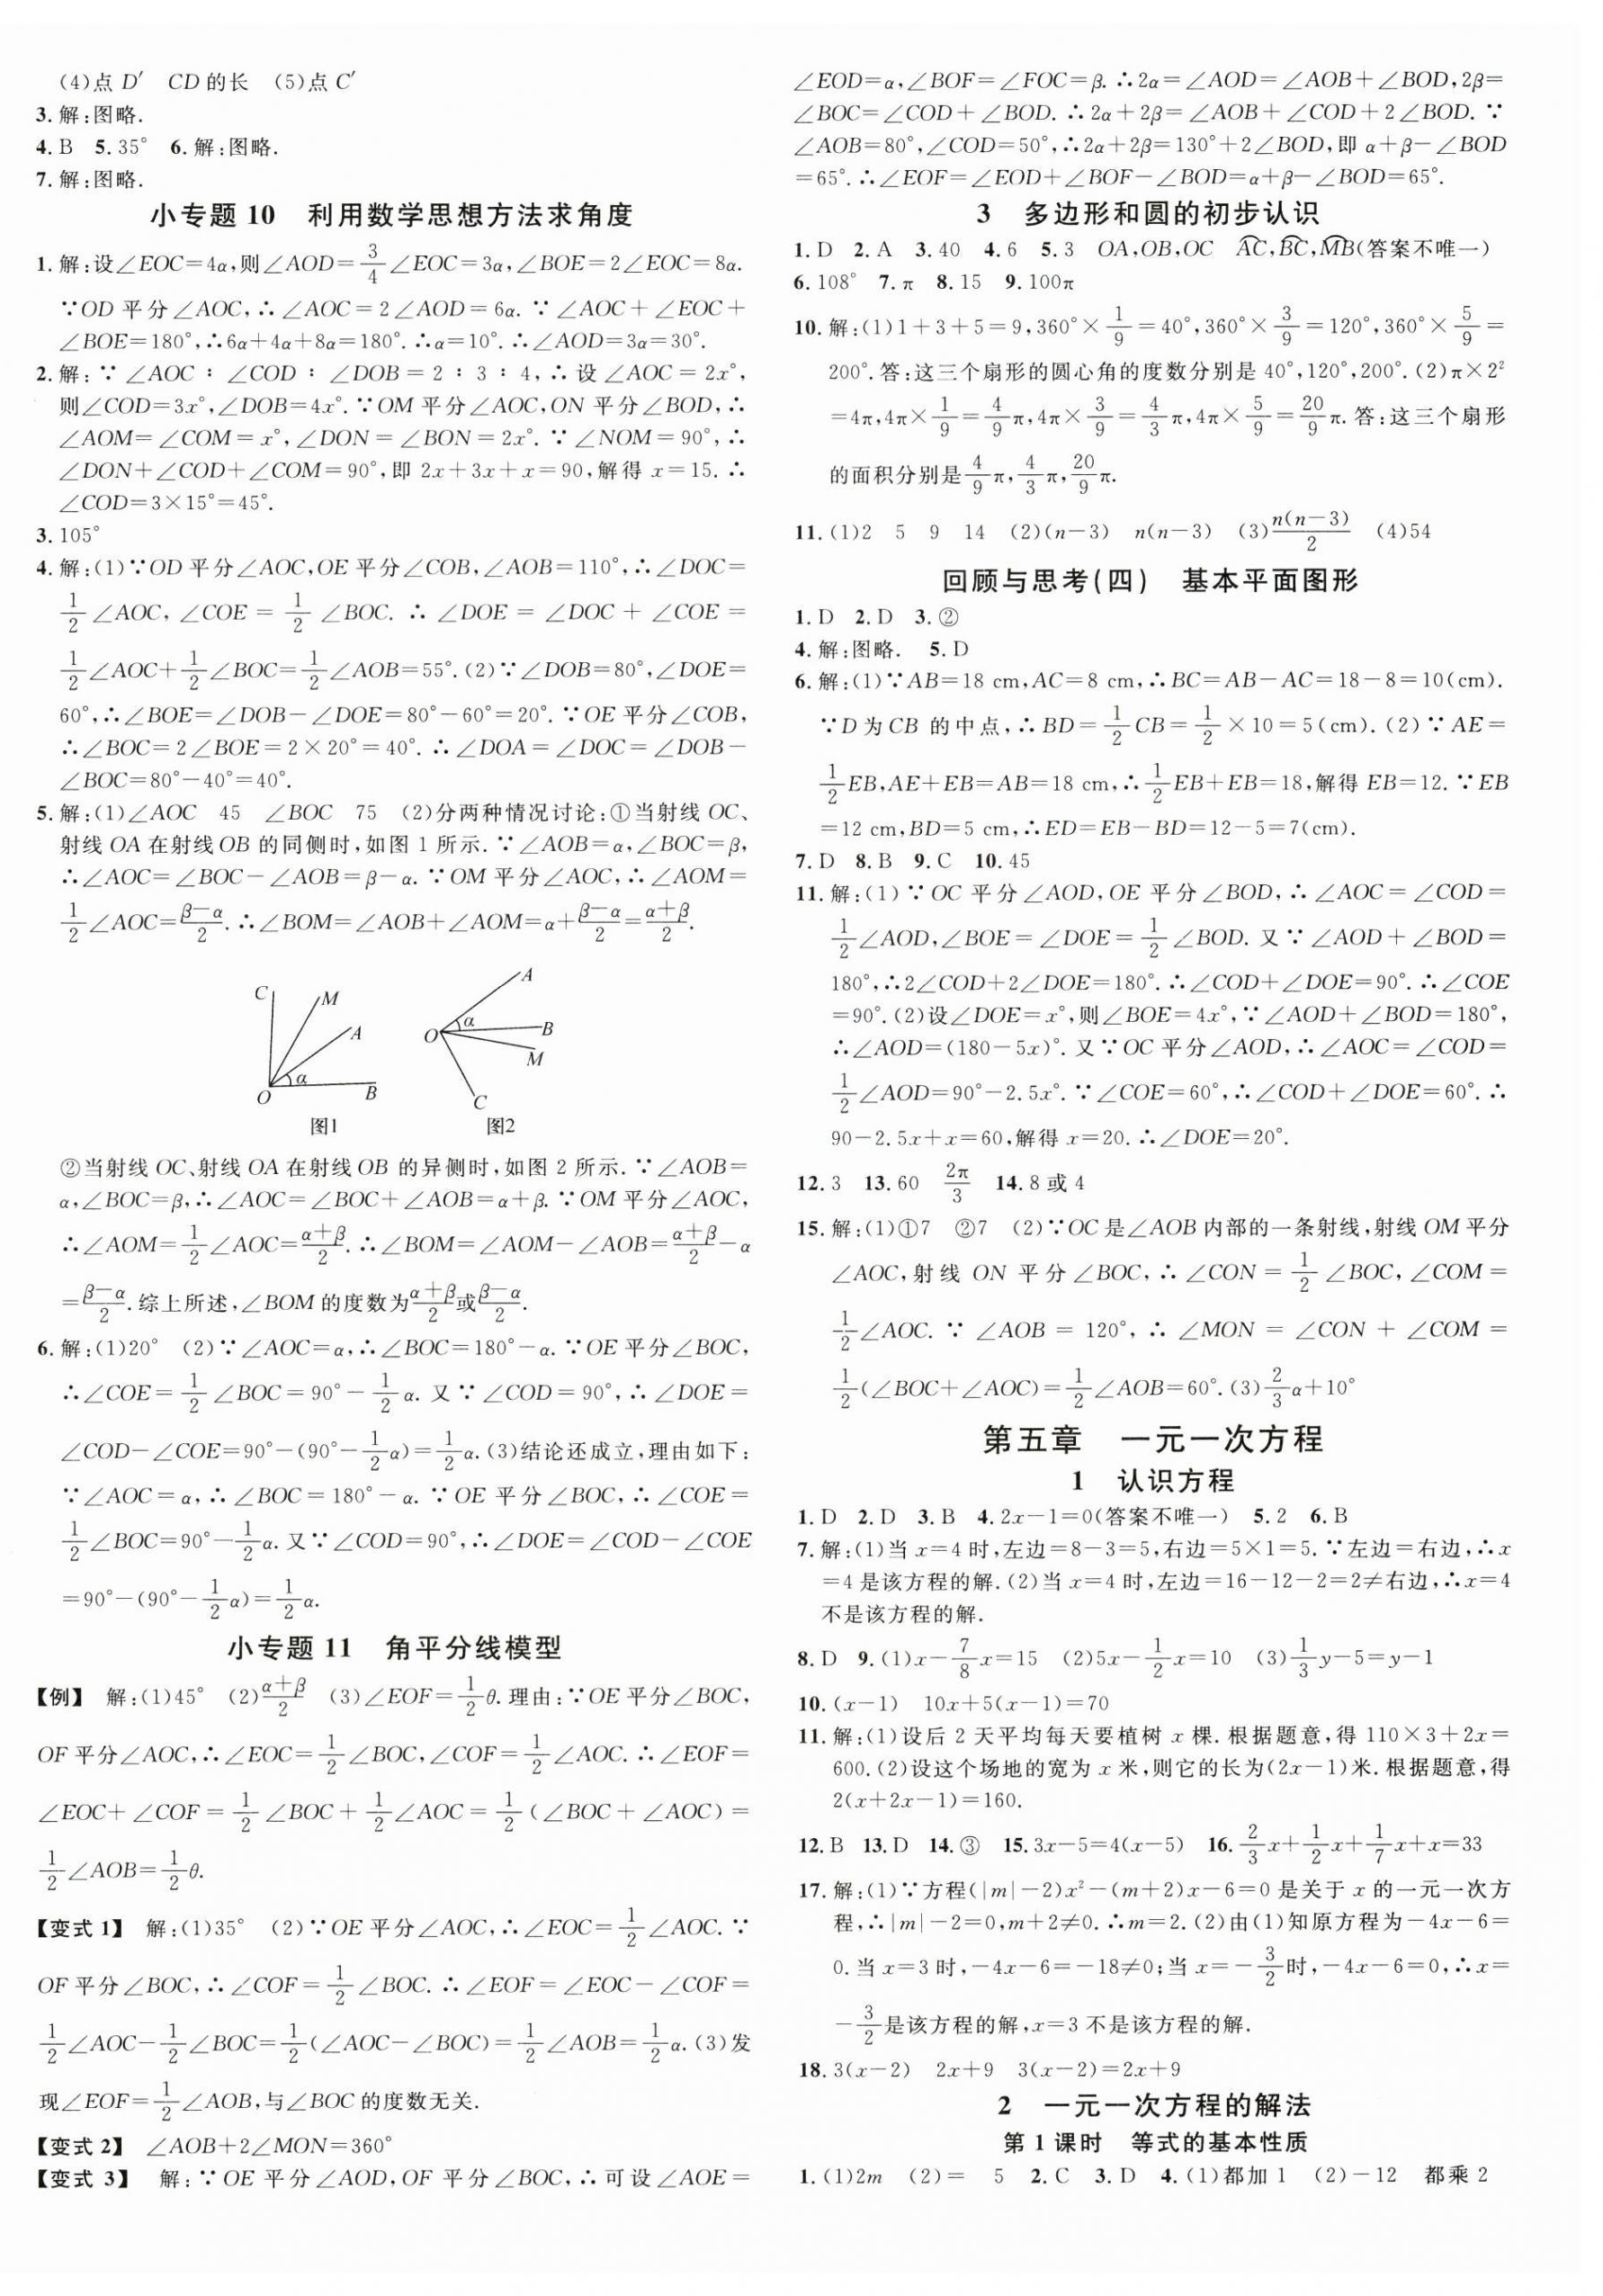 (4)点 D′　CD 的长　(5)点 C′
3. 解:图略.
4. B　5. 35°　6. 解:图略.
7. 解:图略.
小专题 10　利用数学思想方法求角度
1. 解:设∠EOC=4α,则∠AOD=3/4∠EOC=3α,∠BOE=2∠EOC=8α.
∵OD 平分∠AOC,∴∠AOC=2∠AOD=6α. ∵∠AOC+∠EOC+
∠BOE=180°,∴6α+4α+8α=180°. ∴α=10°. ∴∠AOD=3α=30°.
2. 解:∵∠AOC∶∠COD∶∠DOB=2∶3∶4,∴设∠AOC=2x°,
则∠COD=3x°,∠DOB=4x°. ∵OM 平分∠AOC,ON 平分∠BOD,∴
∠AOM=∠COM=x°,∠DON=∠BON=2x°. ∵∠NOM=90°,∴
∠DON+∠COD+∠COM=90°,即 2x+3x+x=90,解得 x=15. ∴
∠COD=3×15°=45°.
3. 105°
4. 解:(1)∵OD 平分∠AOC,OE 平分∠COB,∠AOB=110°,∴∠DOC=
1/2∠AOC,∠COE=1/2∠BOC. ∴∠DOE=∠DOC+∠COE=
1/2∠AOC+1/2∠BOC=1/2∠AOB=55°. (2)∵∠DOB=80°,∠DOE=
60°,∴∠BOE=∠DOB-∠DOE=80°-60°=20°. ∵OE 平分∠COB,
∴∠BOC=2∠BOE=2×20°=40°. ∴∠DOA=∠DOC=∠DOB-
∠BOC=80°-40°=40°.
5. 解:(1)∠AOC　45　∠BOC　75　(2)分两种情况讨论:①当射线 OC、
射线 OA 在射线 OB 的同侧时,如图 1 所示. ∵∠AOB=α,∠BOC=β,
∴∠AOC=∠BOC-∠AOB=β-α. ∵OM 平分∠AOC,∴∠AOM=
1/2∠AOC=(β-α)/2. ∴∠BOM=∠AOB+∠AOM=α+(β-α)/2=(α+β)/2.
C　M　A　α　O　B
图1
A　α　O　B　M　C
图2
②当射线 OC、射线 OA 在射线 OB 的异侧时,如图 2 所示. ∵∠AOB=
α,∠BOC=β,∴∠AOC=∠BOC+∠AOB=α+β. ∵OM 平分∠AOC,
∴∠AOM=1/2∠AOC=(α+β)/2. ∴∠BOM=∠AOM-∠AOB=(α+β)/2-α
=(β-α)/2. 综上所述,∠BOM 的度数为(α+β)/2或(β-α)/2.
6. 解:(1)20°　(2)∵∠AOC=α,∴∠BOC=180°-α. ∵OE 平分∠BOC,
∴∠COE=1/2∠BOC=90°-1/2α. 又∵∠COD=90°,∴∠DOE=
∠COD-∠COE=90°-(90°-1/2α)=1/2α. (3)结论还成立,理由如下:
∵∠AOC=α,∴∠BOC=180°-α. ∵OE 平分∠BOC,∴∠COE=
1/2∠BOC=90°-1/2α. 又∵∠COD=90°,∴∠DOE=∠COD-∠COE
=90°-(90°-1/2α)=1/2α.
小专题 11　角平分线模型
【例】　解:(1)45°　(2)(α+β)/2　(3)∠EOF=1/2θ. 理由:∵OE 平分∠BOC,
OF 平分∠AOC,∴∠EOC=1/2∠BOC,∠COF=1/2∠AOC. ∴∠EOF=
∠EOC+∠COF=1/2∠BOC+1/2∠AOC=1/2(∠BOC+∠AOC)=
1/2∠AOB=1/2θ.
【变式 1】　解:(1)35°　(2)∵OE 平分∠AOC,∴∠EOC=1/2∠AOC. ∵
OF 平分∠BOC,∴∠COF=1/2∠BOC. ∴∠EOF=∠EOC-∠COF=
1/2∠AOC-1/2∠BOC=1/2(∠AOC-∠BOC)=1/2∠AOB=1/2α. (3)发
现∠EOF=1/2∠AOB,与∠BOC 的度数无关.
【变式 2】　∠AOB+2∠MON=360°
【变式 3】　解:∵OE 平分∠AOD,OF 平分∠BOC,∴可设∠AOE=
∠EOD=α,∠BOF=∠FOC=β. ∴2α=∠AOD=∠AOB+∠BOD,2β=
∠BOC=∠COD+∠BOD. ∴2α+2β=∠AOB+∠COD+2∠BOD. ∵
∠AOB=80°,∠COD=50°,∴2α+2β=130°+2∠BOD,即 α+β-∠BOD
=65°. ∴∠EOF=∠EOD+∠BOF-∠BOD=α+β-∠BOD=65°.
3　多边形和圆的初步认识
1. D　2. A　3. 40　4. 6　5. 3　OA,OB,OC　A͡C,B͡C,M͡B(答案不唯一)
6. 108°　7. π　8. 15　9. 100π
10. 解:(1)1+3+5=9,360°×1/9=40°,360°×3/9=120°,360°×5/9=
200°. 答:这三个扇形的圆心角的度数分别是 40°,120°,200°. (2)π×2²
=4π,4π×1/9=4/9π,4π×3/9=4/3π,4π×5/9=20/9π. 答:这三个扇形
的面积分别是4/9π,4/3π,20/9π.
11. (1)2　5　9　14　(2)(n-3)　n(n-3)　(3)n(n-3)/2　(4)54
回顾与思考(四)　基本平面图形
1. D　2. D　3. ②
4. 解:图略.　5. D
6. 解:(1)∵AB=18 cm,AC=8 cm,∴BC=AB-AC=18-8=10(cm).
∵D 为 CB 的中点,∴BD=1/2CB=1/2×10=5(cm). (2)∵AE=
1/2EB,AE+EB=AB=18 cm,∴1/2EB+EB=18,解得 EB=12. ∵EB
=12 cm,BD=5 cm,∴ED=EB-BD=12-5=7(cm).
7. D　8. B　9. C　10. 45
11. 解:(1)∵OC 平分∠AOD,OE 平分∠BOD,∴∠AOC=∠COD=
1/2∠AOD,∠BOE=∠DOE=1/2∠BOD. 又∵∠AOD+∠BOD=
180°,∴2∠COD+2∠DOE=180°. ∴∠COD+∠DOE=90°. ∴∠COE
=90°. (2)设∠DOE=x°,则∠BOE=4x°,∵∠AOD+∠BOD=180°,
∴∠AOD=(180-5x)°. 又∵OC 平分∠AOD,∴∠AOC=∠COD=
1/2∠AOD=90°-2.5x°. ∵∠COE=60°,∴∠COD+∠DOE=60°. ∴
90-2.5x+x=60,解得 x=20. ∴∠DOE=20°.
12. 3　13. 60　2π/3　14. 8 或 4
15. 解:(1)①7　②7　(2)∵OC 是∠AOB 内部的一条射线,射线 OM 平分
∠AOC,射线 ON 平分∠BOC,∴∠CON=1/2∠BOC,∠COM=
1/2∠AOC. ∵∠AOB=120°,∴∠MON=∠CON+∠COM=
1/2(∠BOC+∠AOC)=1/2∠AOB=60°. (3)2/3α+10°
第五章　一元一次方程
1　认识方程
1. D　2. D　3. B　4. 2x-1=0(答案不唯一)　5. 2　6. B
7. 解:(1)当 x=4 时,左边=8-3=5,右边=5×1=5. ∵左边=右边,∴x
=4 是该方程的解. (2)当 x=4 时,左边=16-12-2=2≠右边,∴x=4
不是该方程的解.
8. D　9. (1)x-7/8x=15　(2)5x-1/2x=10　(3)1/3y-5=y-1
10. (x-1)　10x+5(x-1)=70
11. 解:(1)设后 2 天平均每天要植树 x 棵. 根据题意,得 110×3+2x=
600. (2)设这个场地的宽为 x 米,则它的长为(2x-1)米. 根据题意,得
2(x+2x-1)=160.
12. B　13. D　14. ③　15. 3x-5=4(x-5)　16. 2/3x+1/2x+1/7x+x=33
17. 解:(1)∵方程(|m|-2)x²-(m+2)x-6=0 是关于 x 的一元一次方
程,∴|m|-2=0,m+2≠0. ∴m=2. (2)由(1)知原方程为-4x-6=
0. 当 x=3 时,-4x-6=-18≠0;当 x=-3/2时,-4x-6=0,∴x=
-3/2是该方程的解,x=3 不是该方程的解.
18. 3(x-2)　2x+9　3(x-2)=2x+9
2　一元一次方程的解法
第 1 课时　等式的基本性质
1. (1)2m　(2)=　5　2. C　3. D　4. (1)都加 1　(2)-12　都乘 2